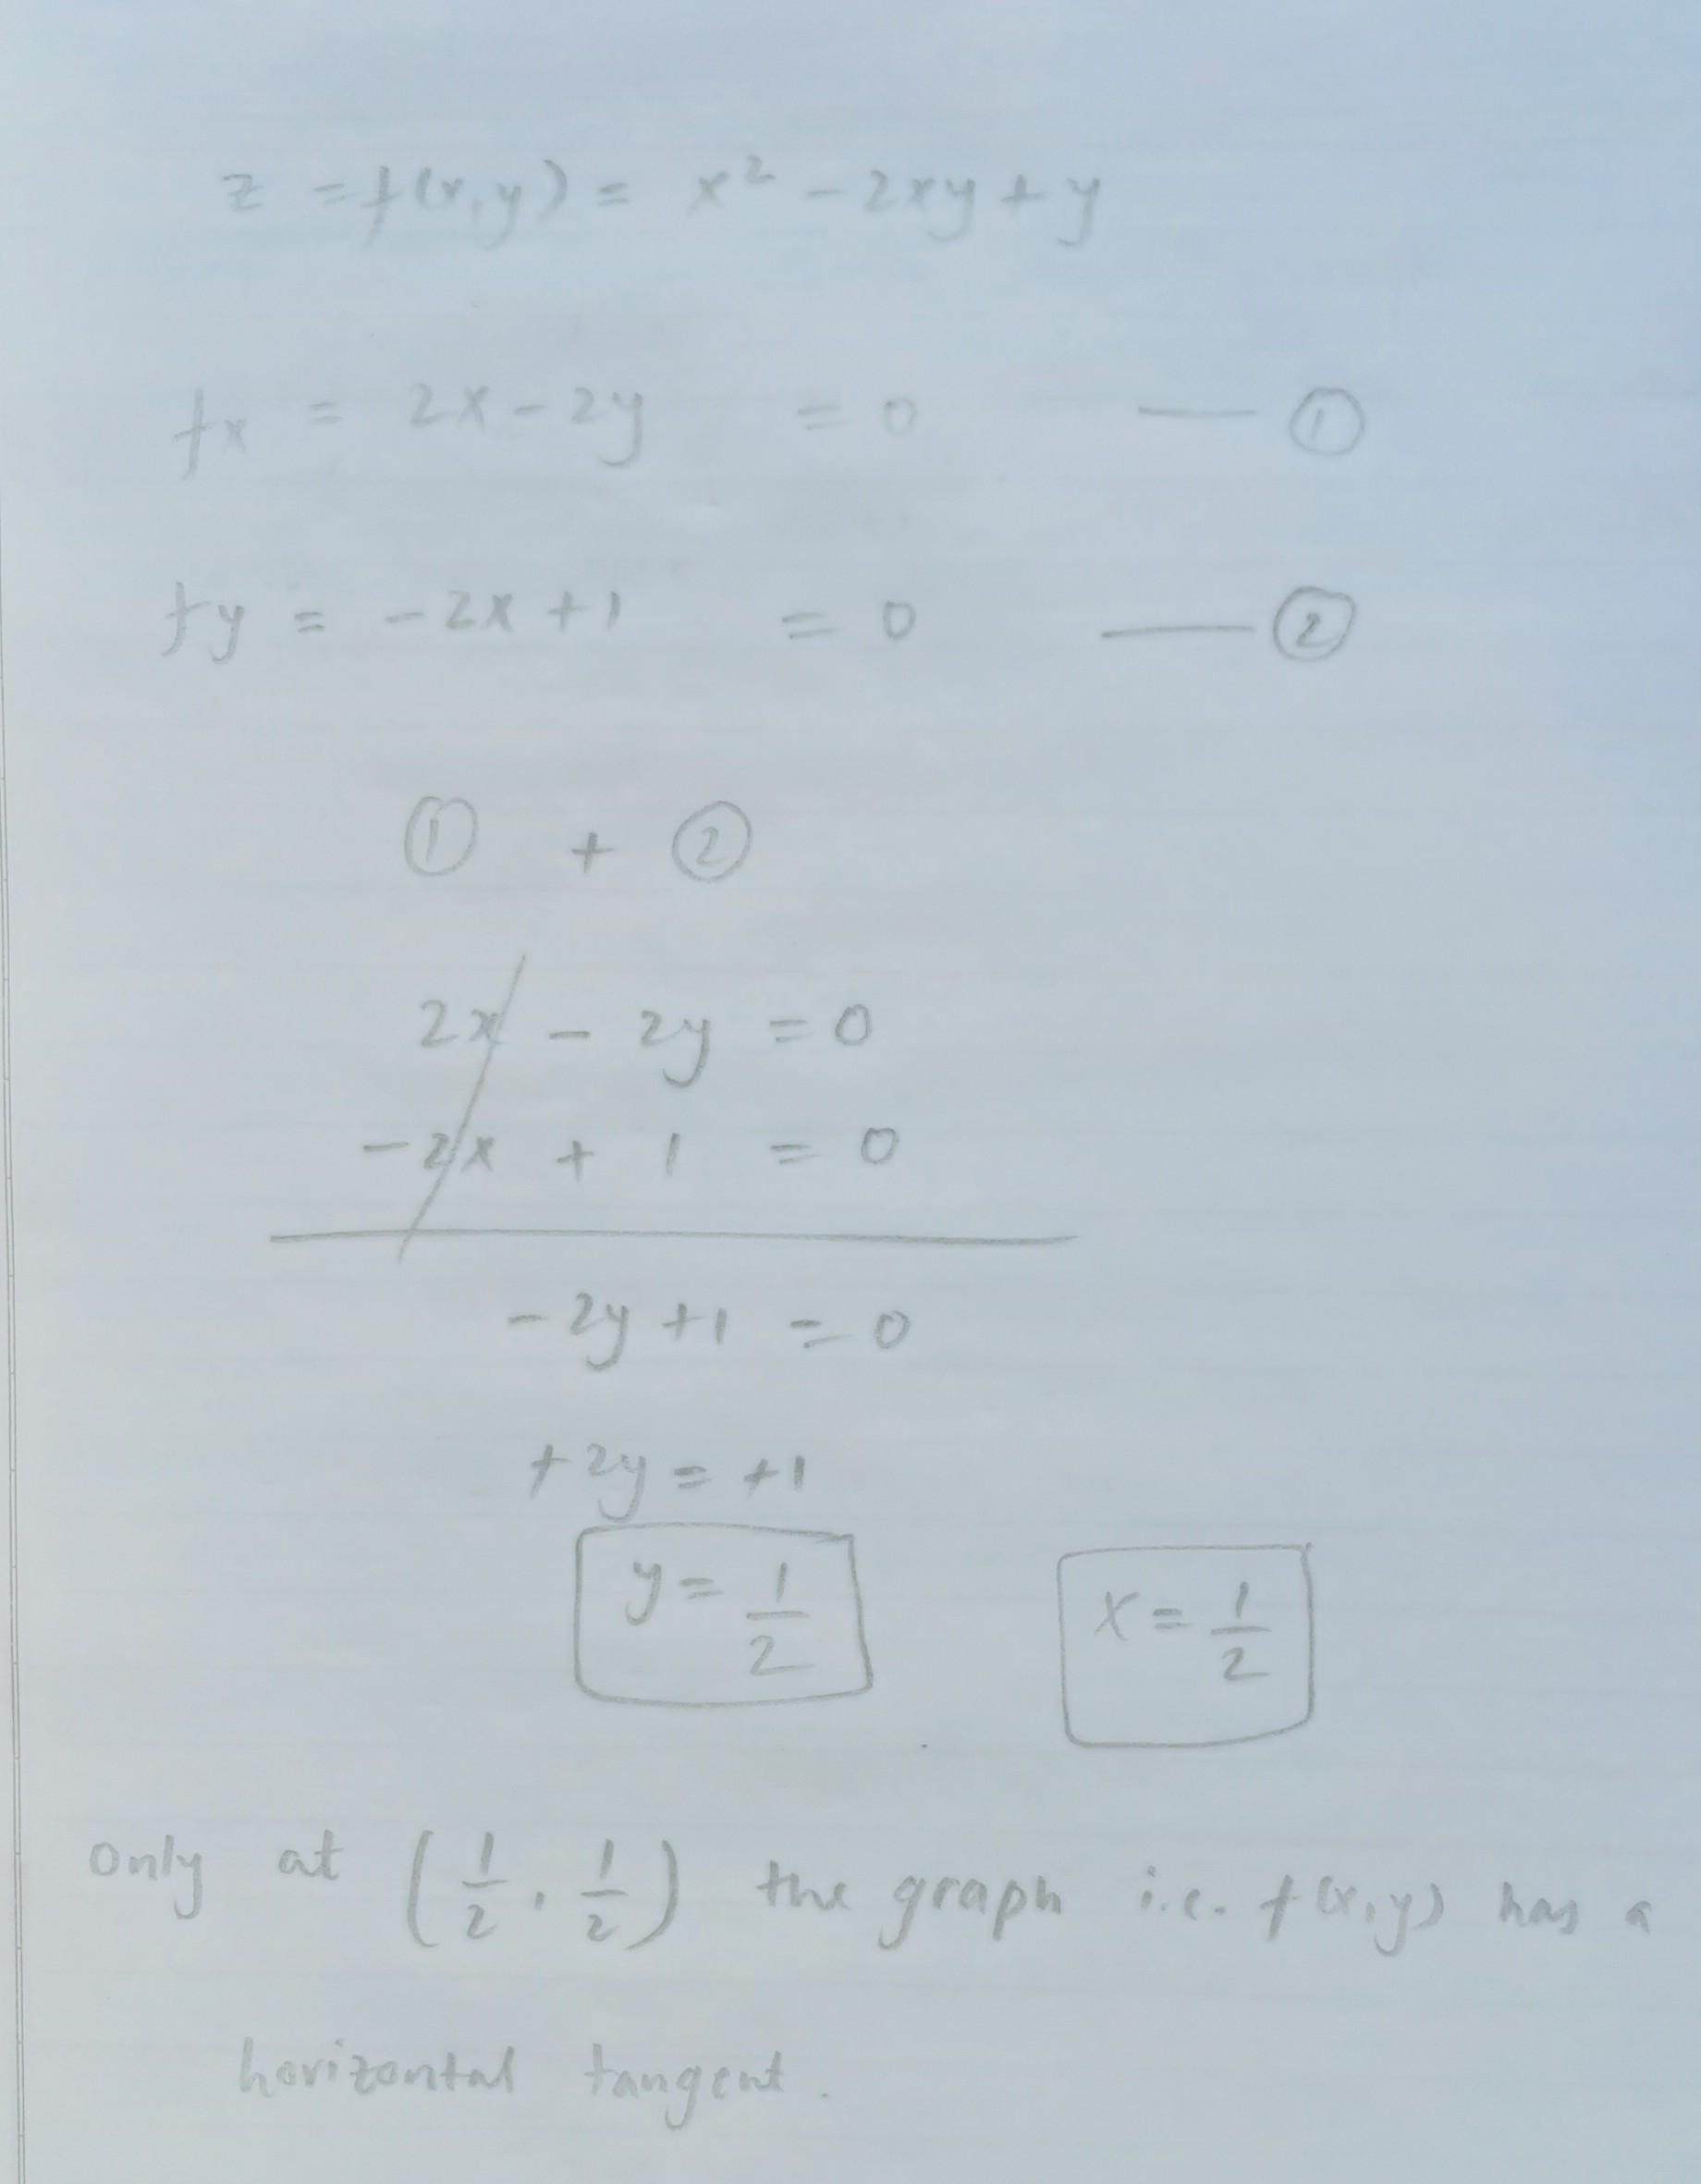 z = f(x,y) = x² - 2xy + y
fx = 2x - 2y = 0 — ①
fy = -2x + 1 = 0 — ②
① + ②
2x - 2y = 0
-2x + 1 = 0
-2y + 1 = 0
+2y = +1
y = 1/2 x = 1/2
only at (1/2, 1/2) the graph i.e. f(x,y) has a
horizontal tangent.